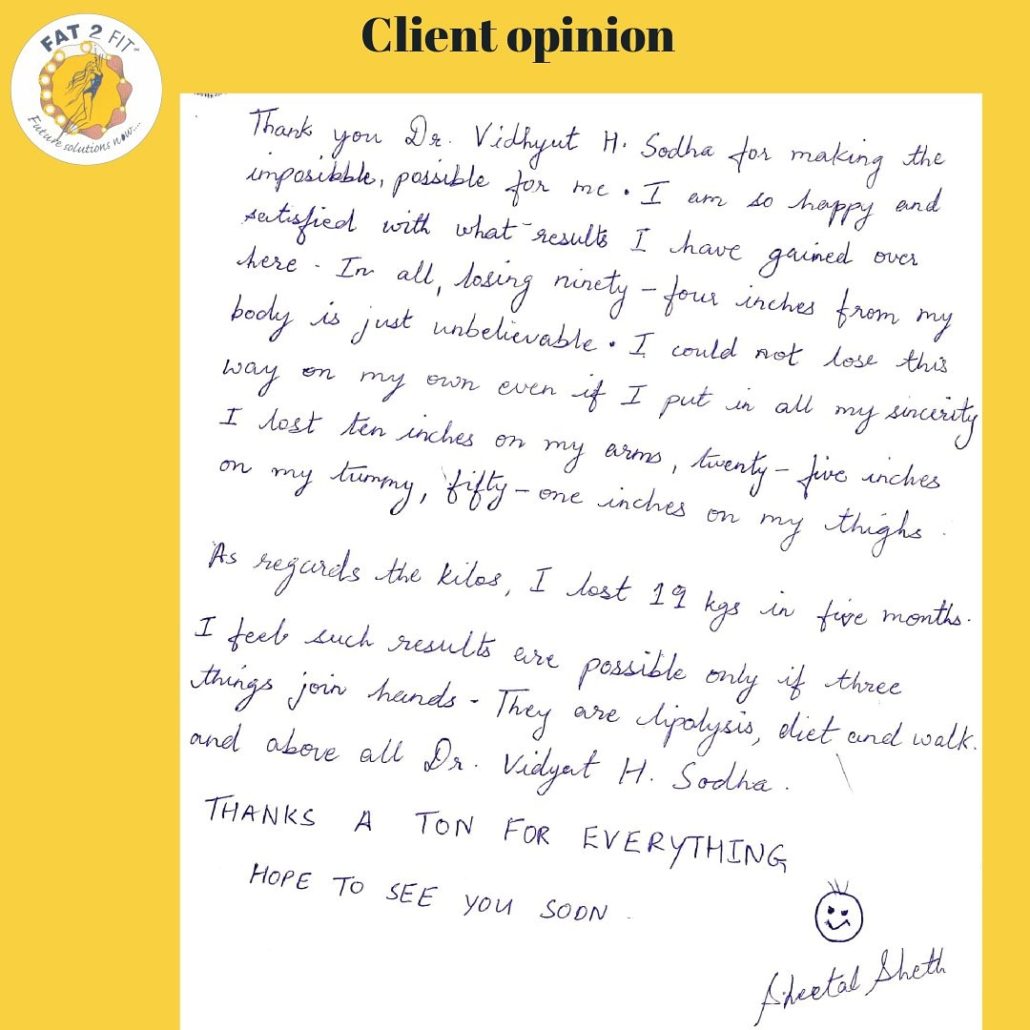 FAT 2 FIT
Future solutions now....
Client opinion
Thank you Dr. Vidhyut H. Sodha for making the
imposibble, possible for me. I am so happy and
satisfied with what results I have gained over
here. In all, losing ninety-four inches from my
body is just unbelievable. I could not lose this
way on my own even if I put in all my sincerity
I lost ten inches on my arms, twenty-five inches
on my tummy, fifty-one inches on my thighs.
As regards the kilos, I lost 19 kgs in five months.
I feel such results are possible only if three
things join hands. They are lipolysis, diet and walk.
and above all Dr. Vidyut H. Sodha.
THANKS A TON FOR EVERYTHING
HOPE TO SEE YOU SOON.
Sheetal Sheth